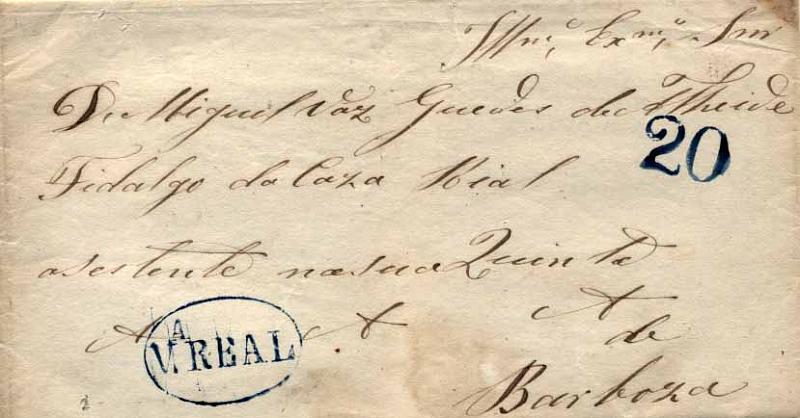 Illm.º Exm.º Snr
D. Miguel Vaz Guedes de Atheide
20
Fidalgo da Caza Rial
asestente na sua Quinta
A A A de
V.A REAL
Barboza